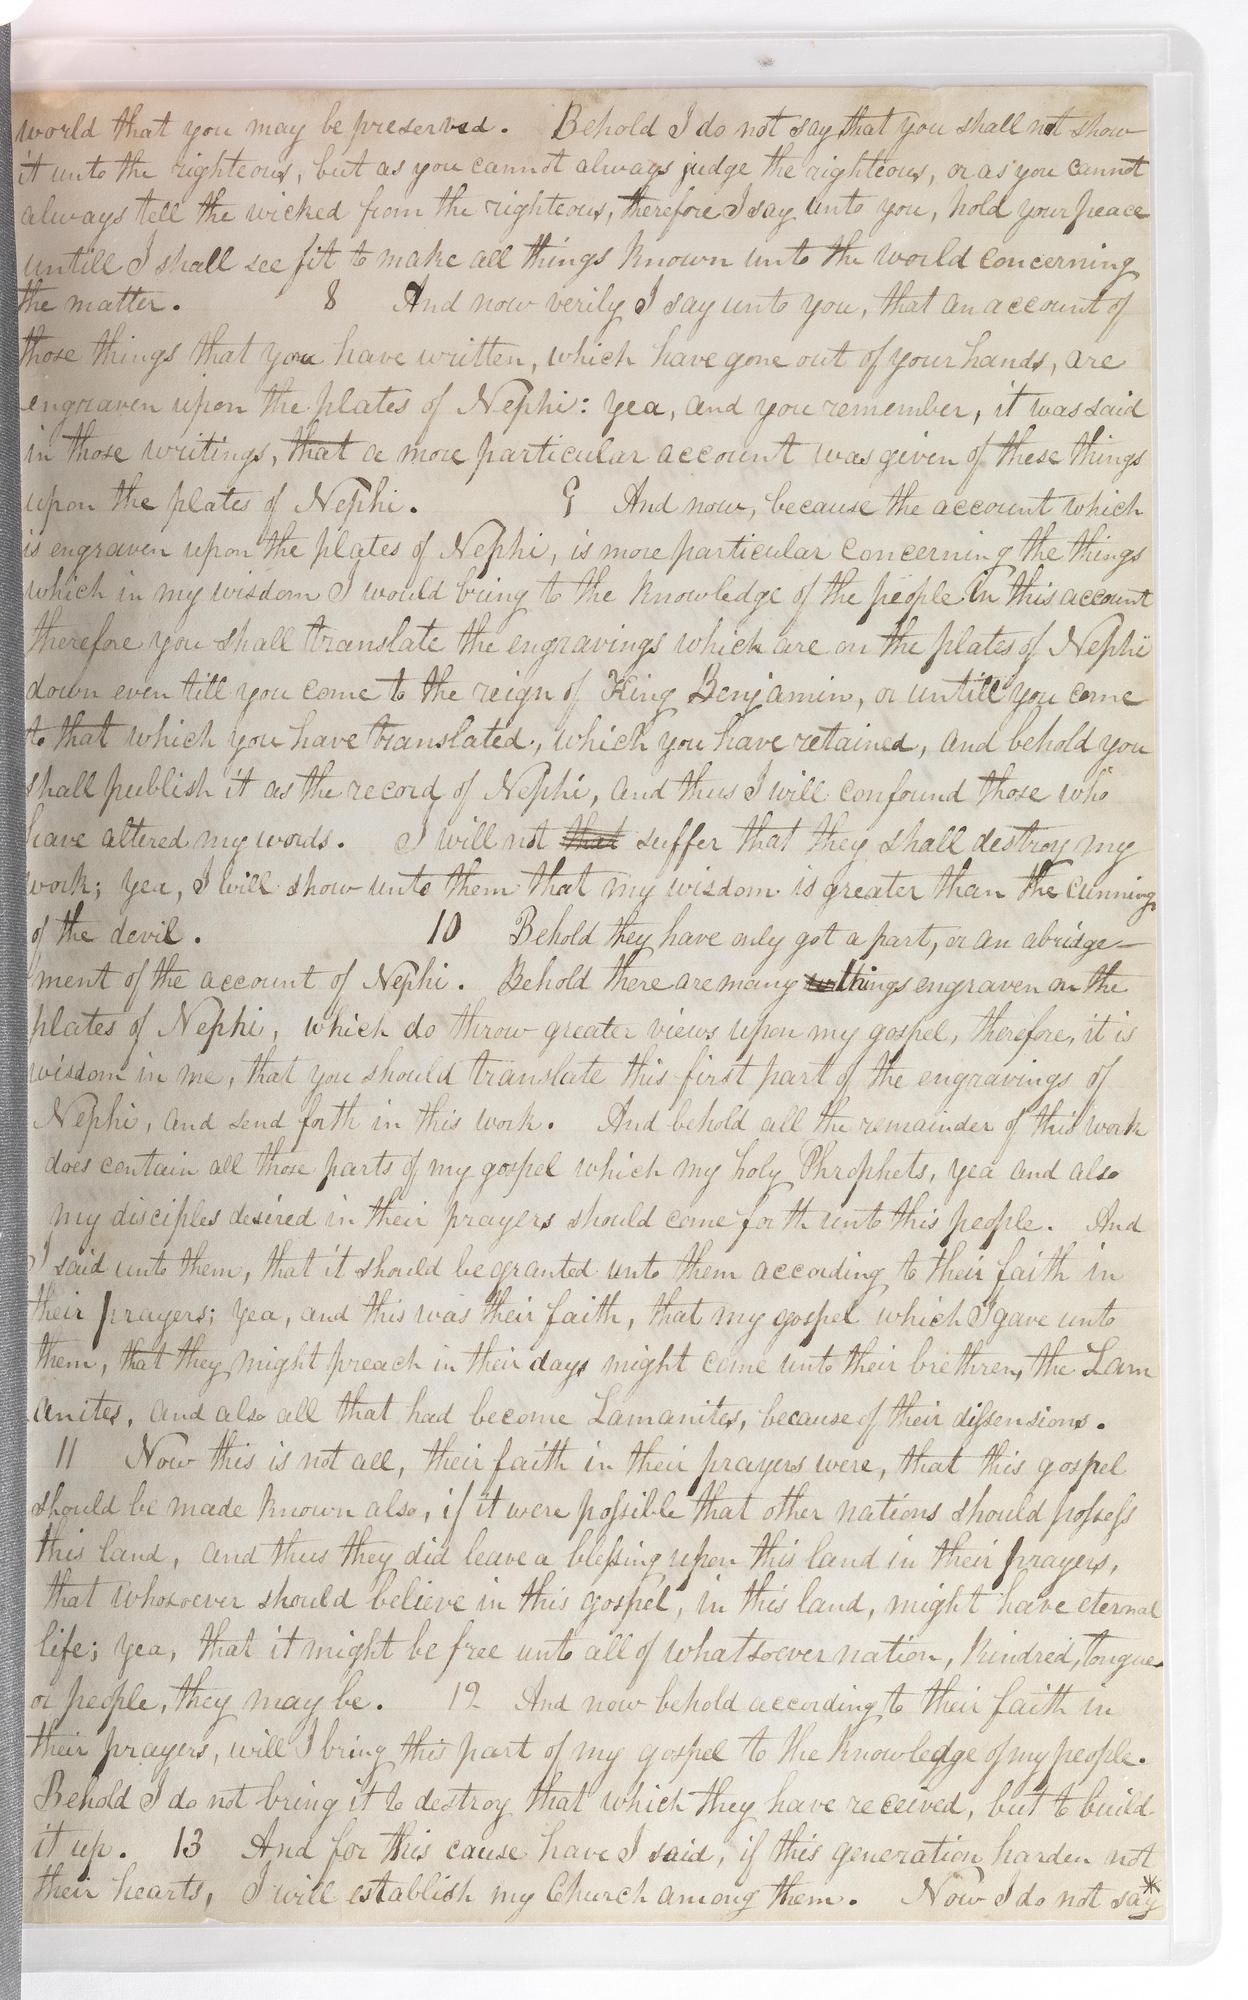 world that you may be preserved. Behold I do not say that you shall not show
it unto the righteous, but as you cannot always judge the righteous, or as you cannot
always tell the wicked from the righteous, therefore I say unto you, hold your peace
untill I shall see fit to make all things known unto the world concerning
the matter. 8 And now verily I say unto you, that an account of
those things that you have written, which have gone out of your hands, are
engraven upon the plates of Nephi: yea, and you remember, it was said
in those writings, that a more particular account was given of these things
upon the plates of Nephi. 9 And now, because the account which
is engraven upon the plates of Nephi, is more particular concerning the things
which in my wisdom I would bring to the knowledge of the people in this account
therefore you shall translate the engravings which are on the plates of Nephi
down even till you come to the reign of King Benjamin, or untill you come
to that which you have translated, which you have retained, and behold you
shall publish it as the record of Nephi, and thus I will confound those who
have altered my words. I will not that suffer that they shall destroy my
work; yea, I will show unto them that my wisdom is greater than the cunning
of the devil. 10 Behold they have only got a part, or an abridge-
ment of the account of Nephi. Behold there are many things engraven on the
plates of Nephi, which do throw greater views upon my gospel, therefore, it is
wisdom in me, that you should translate this first part of the engravings of
Nephi, and send forth in this work. And behold all the remainder of this work
does contain all those parts of my gospel which my holy Phrophets, yea and also
my disciples desired in their prayers should come forth unto this people. And
I said unto them, that it should be granted unto them according to their faith in
their prayers; yea, and this was their faith, that my gospel which I gave unto
them, that they might preach in their days might come unto their brethren, the Lam
anites, and also all that had become Lamanites, because of their dissensions.
11 Now this is not all, their faith in their prayers were, that this gospel
should be made known also, if it were possible that other nations should possess
this land, and thus they did leave a blessing upon this land in their prayers,
that whosoever should believe in this gospel, in this land, might have eternal
life; yea, that it might be free unto all of whatsoever nation, kindred, tongue
or people, they may be. 12 And now behold according to their faith in
their prayers, will I bring this part of my gospel to the knowledge of my people.
Behold I do not bring it to destroy that which they have received, but to build
it up. 13 And for this cause have I said, if this generation harden not
their hearts, I will establish my Church among them. Now I do not say*